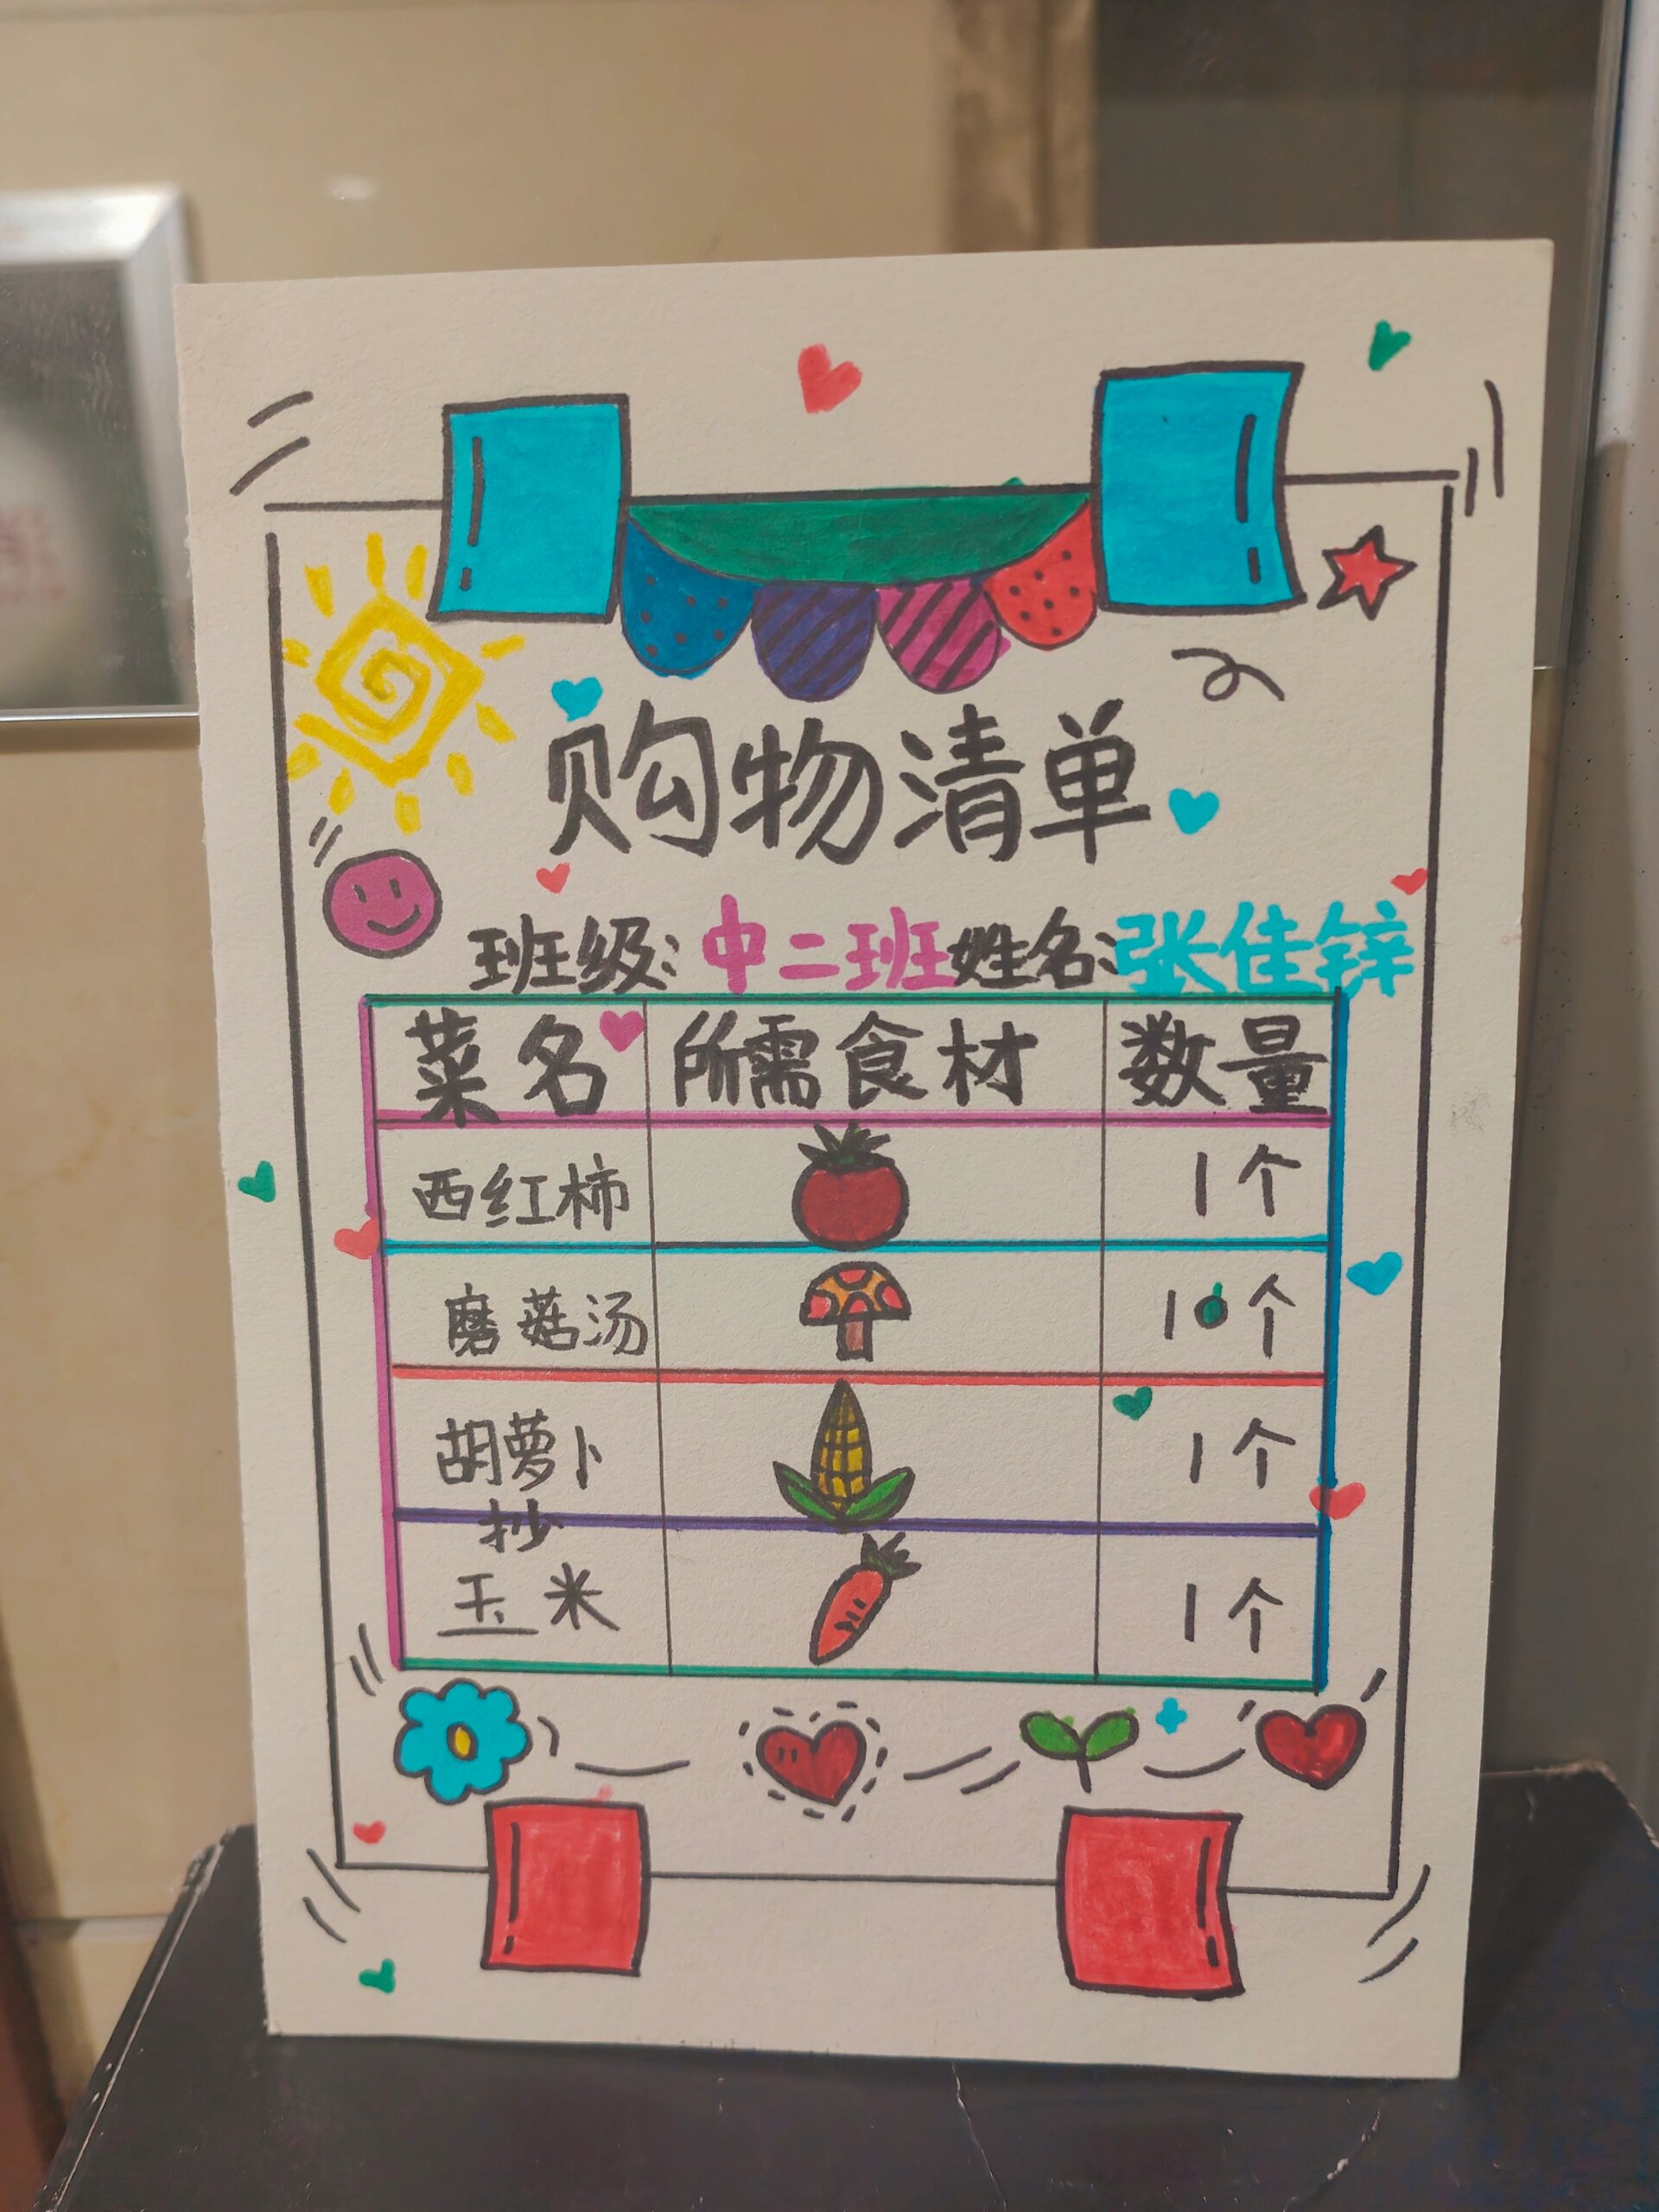 购物清单
班级：中二班姓名：张佳锌
菜名 所需食材 数量
西红柿 1个
磨菇汤 10个
胡萝卜 1个
抄
玉米 1个